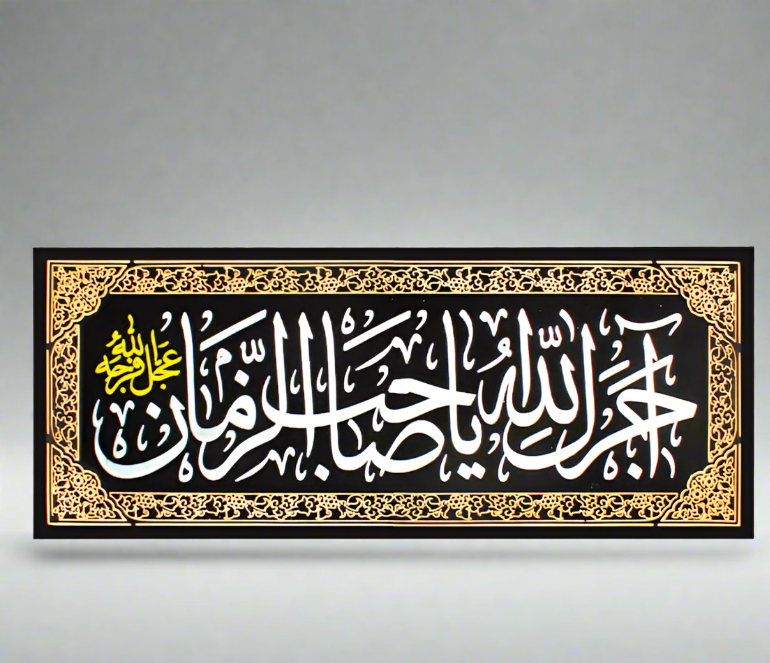 آجرك الله يا صاحب الزمان
عجل الله فرجه